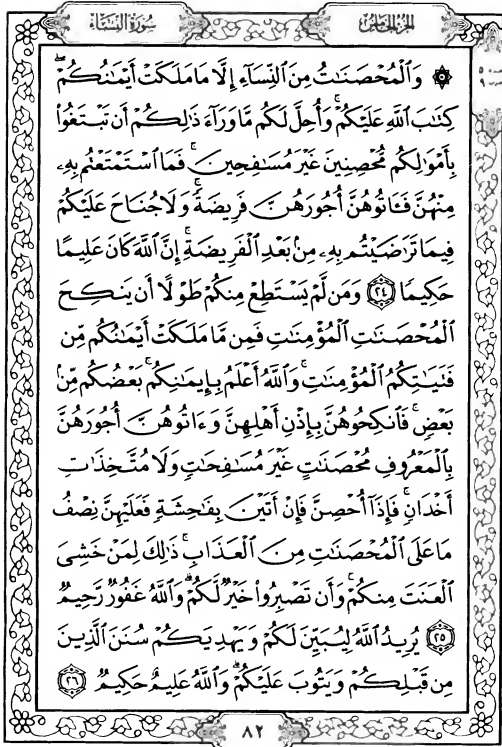 سُورَةُ النِّسَاءِ
الجُزْءُ الخَامِسُ
۞ وَالْمُحْصَنَاتُ مِنَ النِّسَاءِ إِلَّا مَا مَلَكَتْ أَيْمَانُكُمْ ۖ
كِتَابَ اللَّهِ عَلَيْكُمْ ۚ وَأُحِلَّ لَكُم مَّا وَرَاءَ ذَٰلِكُمْ أَن تَبْتَغُوا
بِأَمْوَالِكُم مُّحْصِنِينَ غَيْرَ مُسَافِحِينَ ۚ فَمَا اسْتَمْتَعْتُم بِهِ
مِنْهُنَّ فَآتُوهُنَّ أُجُورَهُنَّ فَرِيضَةً ۚ وَلَا جُنَاحَ عَلَيْكُمْ
فِيمَا تَرَاضَيْتُم بِهِ مِن بَعْدِ الْفَرِيضَةِ ۚ إِنَّ اللَّهَ كَانَ عَلِيمًا
حَكِيمًا ٢٤ وَمَن لَّمْ يَسْتَطِعْ مِنكُمْ طَوْلًا أَن يَنكِحَ
الْمُحْصَنَاتِ الْمُؤْمِنَاتِ فَمِن مَّا مَلَكَتْ أَيْمَانُكُم مِّن
فَتَيَاتِكُمُ الْمُؤْمِنَاتِ ۚ وَاللَّهُ أَعْلَمُ بِإِيمَانِكُم ۚ بَعْضُكُم مِّن
بَعْضٍ ۚ فَانكِحُوهُنَّ بِإِذْنِ أَهْلِهِنَّ وَءَاتُوهُنَّ أُجُورَهُنَّ
بِالْمَعْرُوفِ مُحْصَنَاتٍ غَيْرَ مُسَافِحَاتٍ وَلَا مُتَّخِذَاتِ
أَخْدَانٍ ۚ فَإِذَا أُحْصِنَّ فَإِنْ أَتَيْنَ بِفَاحِشَةٍ فَعَلَيْهِنَّ نِصْفُ
مَا عَلَى الْمُحْصَنَاتِ مِنَ الْعَذَابِ ۚ ذَٰلِكَ لِمَنْ خَشِيَ
الْعَنَتَ مِنكُمْ ۚ وَأَن تَصْبِرُوا خَيْرٌ لَّكُمْ ۗ وَاللَّهُ غَفُورٌ رَّحِيمٌ
٢٥ يُرِيدُ اللَّهُ لِيُبَيِّنَ لَكُمْ وَيَهْدِيَكُمْ سُنَنَ الَّذِينَ
مِن قَبْلِكُمْ وَيَتُوبَ عَلَيْكُمْ ۗ وَاللَّهُ عَلِيمٌ حَكِيمٌ ٢٦
٨٢